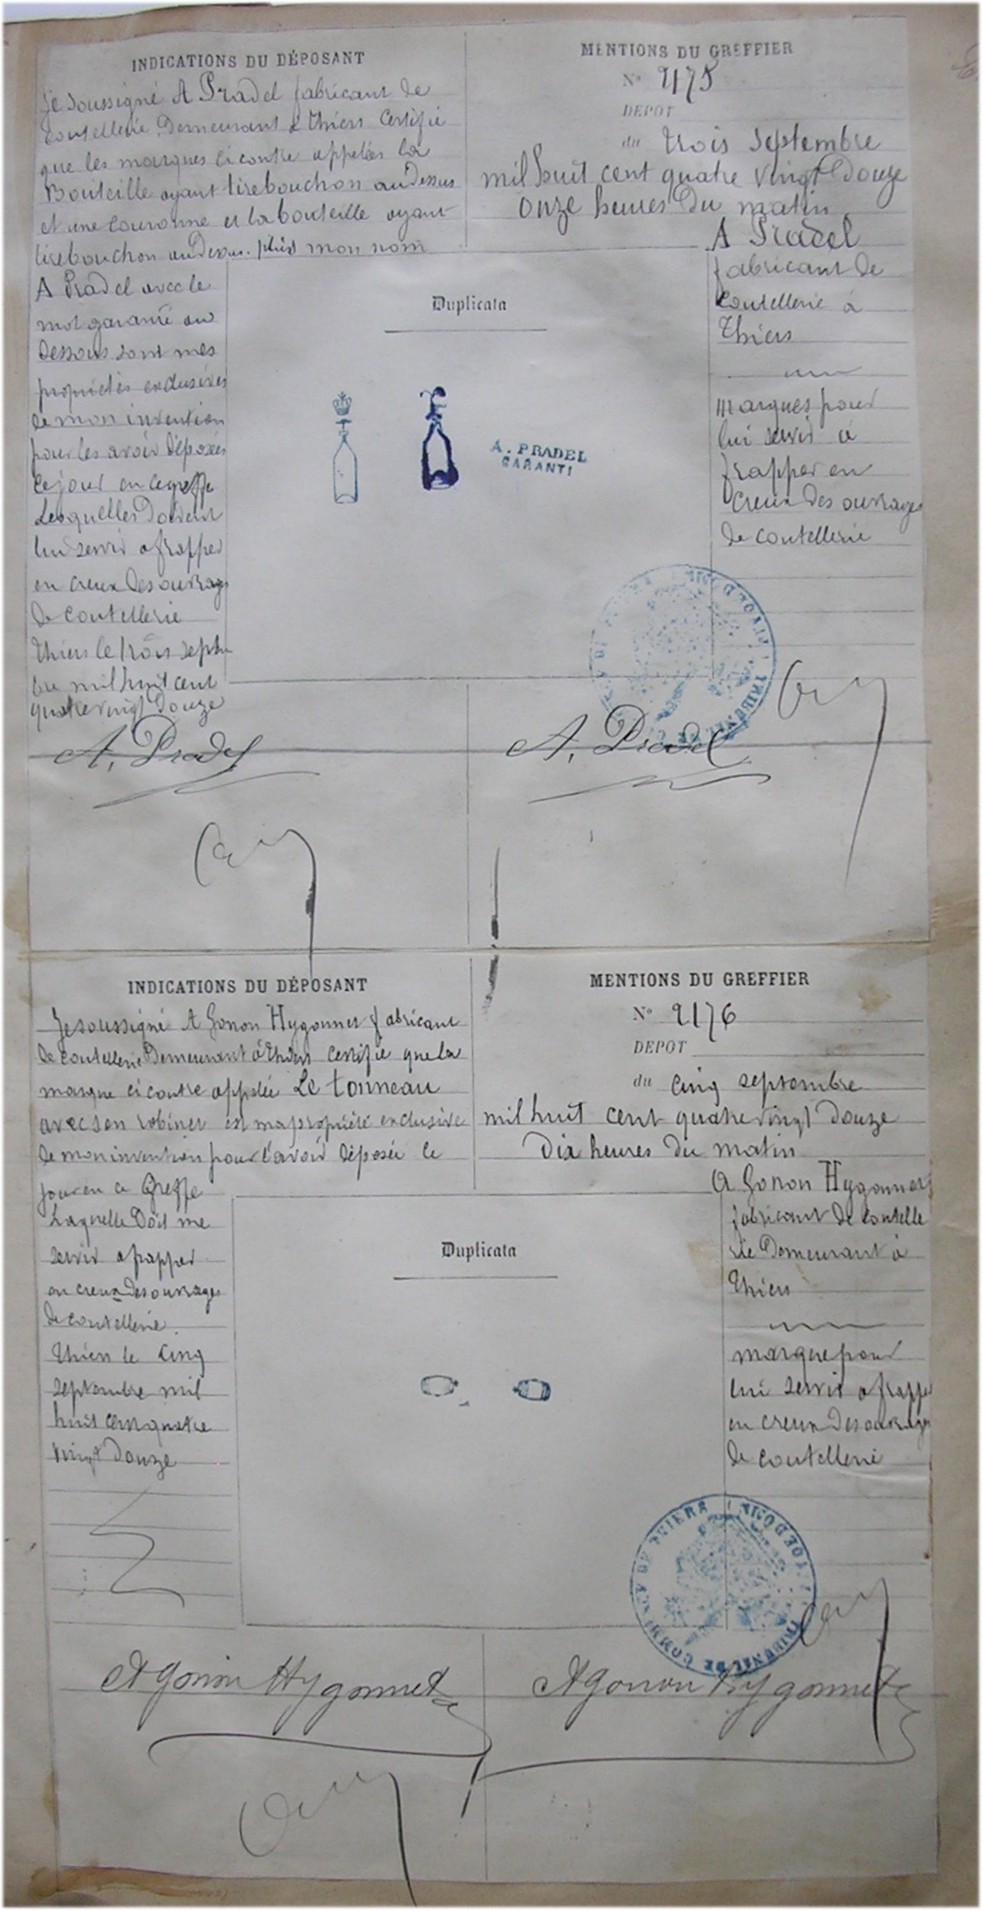 INDICATIONS DU DÉPOSANT
Je soussigné A Pradel fabricant de
coutellerie Demeurant à Thiers certifie
que les marques ci contre appelées La
Bouteille ayant tirebouchon au dessus
et une couronne et la bouteille ayant
tirebouchon au dessus. plus mon nom
A Pradel avec le
mot garanti au
dessous sont mes
propriétés exclusives
de mon invention
pour les avoir déposées
ce jour en ce greffe
Lesquelles doivent
lui servir a frapper
en creux des ouvrages
de coutellerie
Thiers le trois septem
bre mil huit cent
quatre vingt Douze
A. Pradel
MENTIONS DU GREFFIER
N° 2175
DEPOT
du trois septembre
mil huit cent quatre vingt Douze
onze heures Du matin
A Pradel
fabricant de
coutellerie à
Thiers
marques pour
lui servir à
frapper en
creux des ouvrages
de coutellerie
A. Pradel
Duplicata
A. PRADEL
GARANTI
INDICATIONS DU DÉPOSANT
Je soussigné A Gonon Hygonnet fabricant
de coutellerie Demeurant à Thiers certifie que la
marque ci contre appelée Le tonneau
avec son robinet est ma propriété exclusive
de mon invention pour l'avoir déposée ce
jour en ce Greffe
Laquelle Doit me
servir a frapper
en creux des ouvrages
de coutellerie.
Thiers le cinq
septembre mil
huit cent quatre
vingt Douze
A Gonon Hygonnet
MENTIONS DU GREFFIER
N° 2176
DEPOT
du cinq septembre
mil huit cent quatre vingt douze
Dix heures du matin
A Gonon Hygonnet
fabricant de coutelle
rie Demeurant à
Thiers
marque pour
lui servir a frapper
en creux des ouvrages
de coutellerie
A Gonon Hygonnet
Duplicata
TRIBUNAL DE COMMERCE DE THIERS (PUY-DE-DOME)